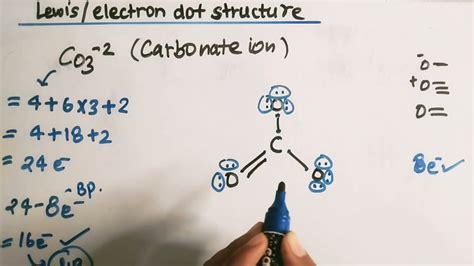 Lewis/electron dot structure
CO3-2 (Carbonate ion)
= 4+6x3+2
= 4+18+2
= 24e-
24-8e- BP.
= 16e- ✓
O
C
O O
-O—
+O≡
O=
8e- ✓